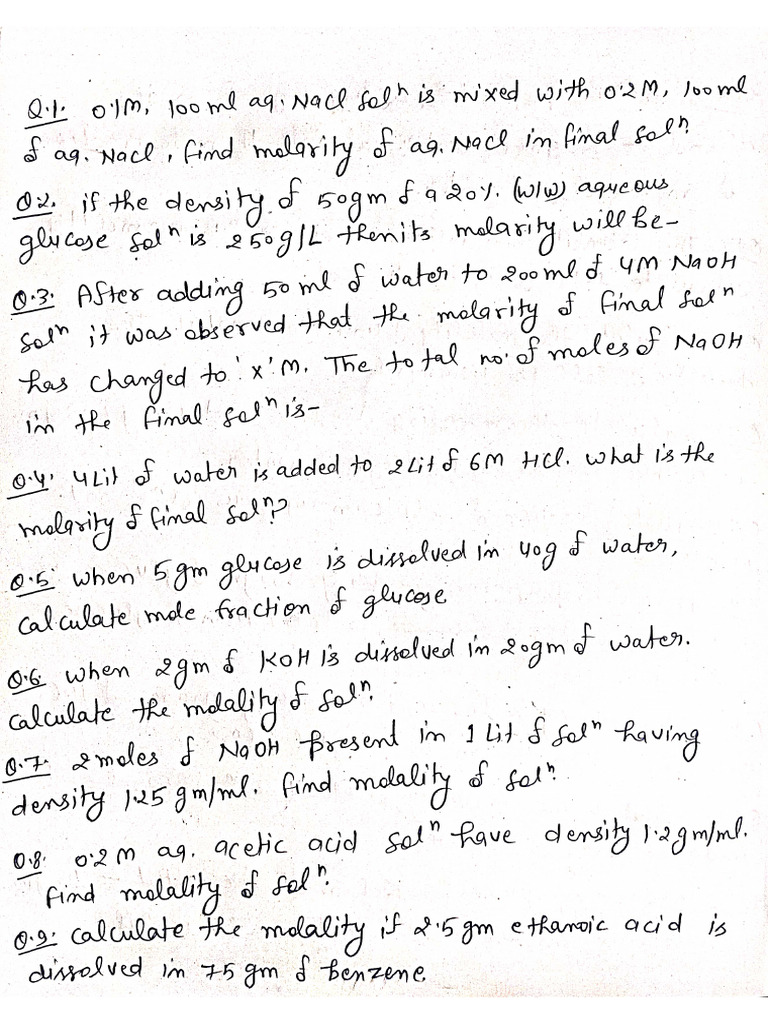 Q.1. 0.1M, 100 ml aq. NaCl solⁿ is mixed with 0.2M, 100 ml
of aq. NaCl, find molarity of aq. NaCl in final solⁿ.
Q.2. if the density of 50gm of a 20%. (w/w) aqueous
glucose solⁿ is 250g/L then its molarity will be-
Q.3. After adding 50 ml of water to 200ml of 4M NaOH
solⁿ it was observed that the molarity of final solⁿ
has changed to 'x' M. The total no. of moles of NaOH
in the final solⁿ is-
Q.4. 4Lit of water is added to 2Lit of 6M HCl. what is the
molarity of final solⁿ?
Q.5. when 5gm glucose is dissolved in 40g of water,
calculate mole fraction of glucose
Q.6. when 2gm of KOH is dissolved in 20gm of water.
calculate the molality of solⁿ.
Q.7. 2moles of NaOH present in 1 Lit of solⁿ having
density 1.25 gm/ml. find molality of solⁿ.
Q.8. 0.2 M aq. acetic acid solⁿ have density 1.2gm/ml.
find molality of solⁿ.
Q.9. calculate the molality if 2.5gm ethanoic acid is
dissolved in 75 gm of benzene.